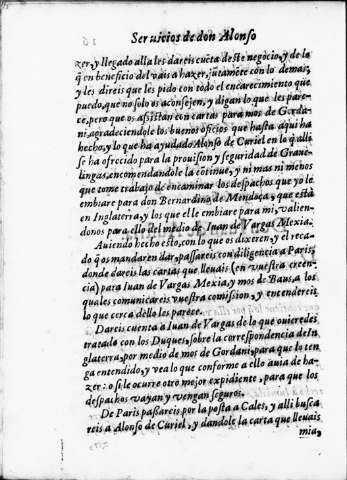 Seruicios de don Alonso
zer, y llegado alla les dareis cuẽta deste negocio, y de lo
q̃ en beneficio del vais a hazer, jũtamẽte con lo demas;
y les direis que les pido con todo el encarecimiento que
puedo, que no solo os aconsejen, y digan lo que les pare-
ce, pero que os assistan con cartas para mos de Gorda-
ni, agradeciendole los buenos oficios que hasta aqui ha
hecho, y lo que ha ayudado Alonso de Curiel en lo q̃ alli
se ha ofrecido para la prouision y seguridad de Graue-
lingas, encomendandole la cõtinue, y ni mas ni menos
que tome trabajo de encaminar los despachos que yo le
embiare para don Bernardino de Mendoça, que està
en Inglaterra, y los que el le embiare para mi, valien-
donos para ello del medio de Iuan de Vargas Mexia.
Auiendo hecho esto, con lo que os dixeren, y el reca-
do q̃ os mandaren dar, passareis con diligencia a Paris,
donde dareis las cartas que lleuais (en vuestra creen-
cia) para Iuan de Vargas Mexia, y mos de Baus, a los
quales comunicareis vuestra comission, y entendereis
lo que cerca dello les parece.
Dareis cuenta a Iuan de Vargas de lo que ouieredes
tratado con los Duques, sobre la correspondencia de In
glaterra, por medio de mos de Gordani, para que lo ten
ga entendido, y vea lo que conforme a ello auia de ha-
zer: o si le ocurre otro mejor expidiente, para que los
despachos vayan y vengan seguros.
De Paris passareis por la posta a Cales, y alli busca
reis a Alonso de Curiel, y dandole la carta que lleuais
mia,